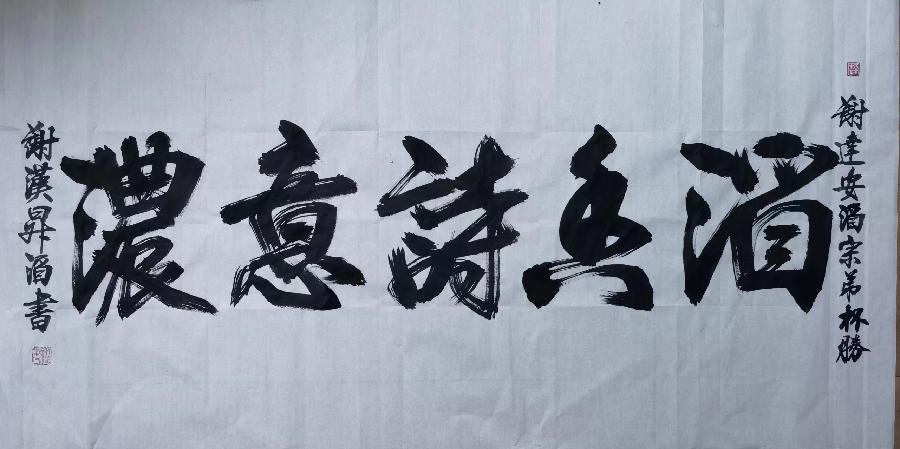 謝達安酒宗弟杯勝
酒香詩意濃
謝漢昇酒書